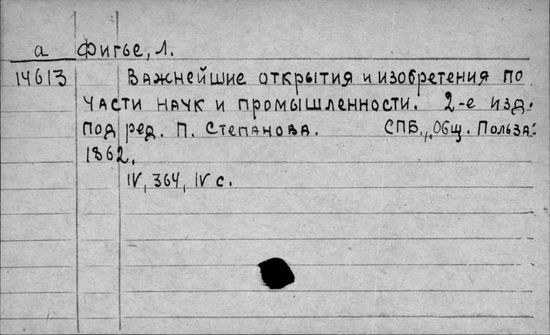 а Фигье, Л.
14613 Важнейшие открытия и изобретения по
части наук и промышленности. 2-е изд.
Под ред. П. Степанова. СПБ., „Общ. Польза"
1862.
IV, 364, IV с.